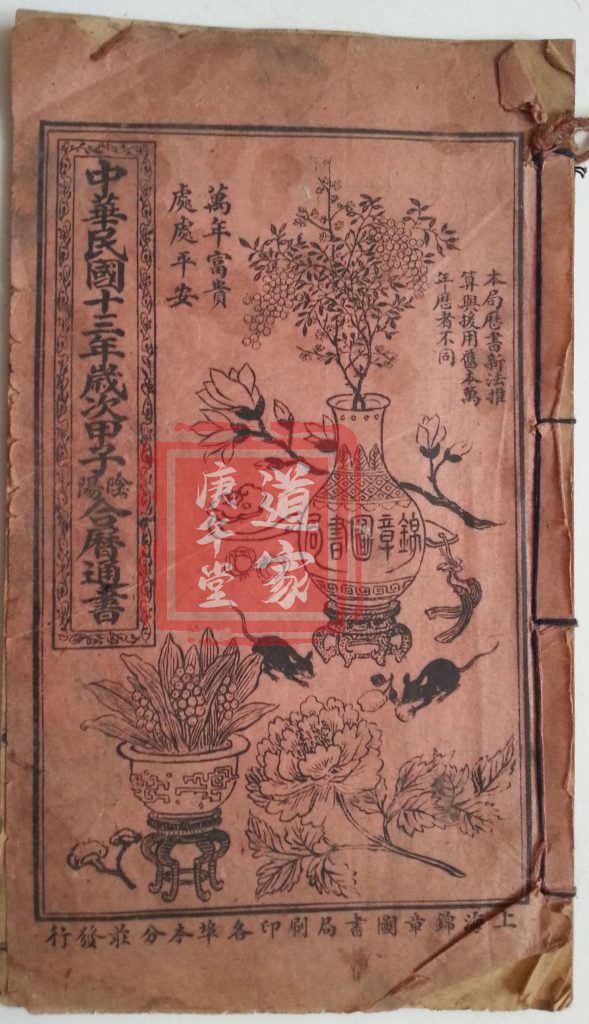 本局厯書新法推
算與援用舊本萬
年厯者不同
萬年富貴
處處平安
中華民國十三年歲次甲子陰陽合曆通書
錦章圖書局
道家
上海錦章圖書局刷印各埠本分莊發行